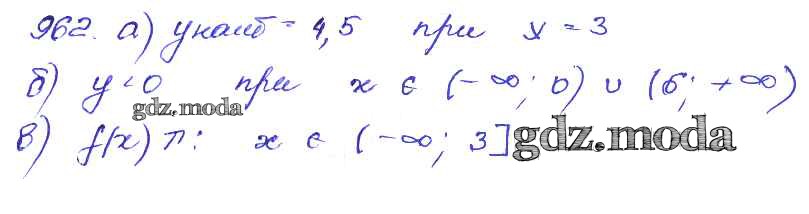 962. а) yнаиб = 4,5 при x = 3
б) y < 0 при x ∈ (-∞; 0) ∪ (6; +∞)
gdz.moda
в) f(x) ↗: x ∈ (-∞; 3]
gdz.moda